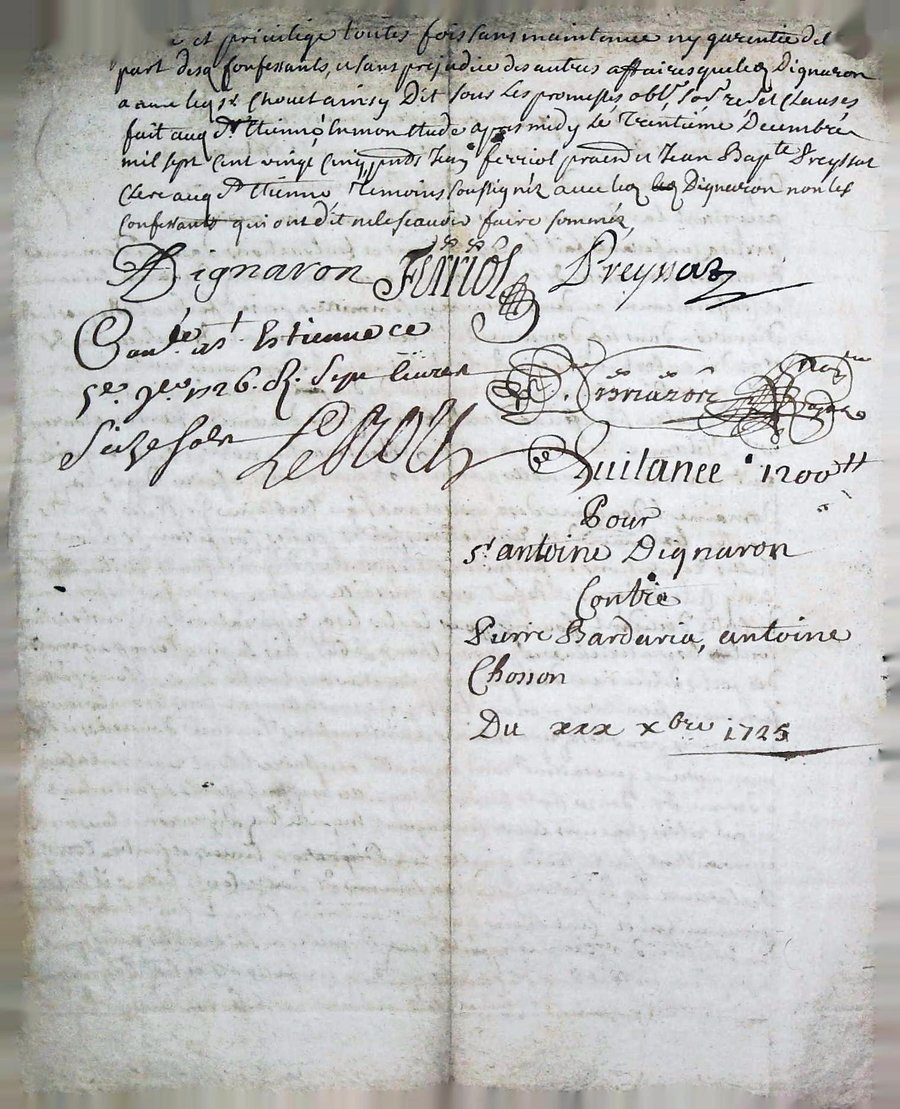 et privilege toutes fois sans maintenue ny garentie de
part desq confessants, et sans prejudice des autres affaires que led Dignaron
a avec led sr Chouet ainsy Dit sous les promesses obl. sos. res et Clauses
fait aud St Etienne en mon etude apres midy le trentieme Decembre
mil sept cent vingt cinq pnts Jean ferriol et Jean Bapte Preyssat
clerc aud St Etienne temoins soussignéz avec led Dignaron non les
confessants qui ont dit ne le scavoir faire sommés
Dignaron Ferriol Preynat
Conle a St Estienne ce
5e 1726. R. Sept livres
Six sols LeROY
Quitance 1200tt
Pour
sr antoine Dignaron
Contre
Pierre Bardaria, antoine
Chosson
Du xxx xbre 1725